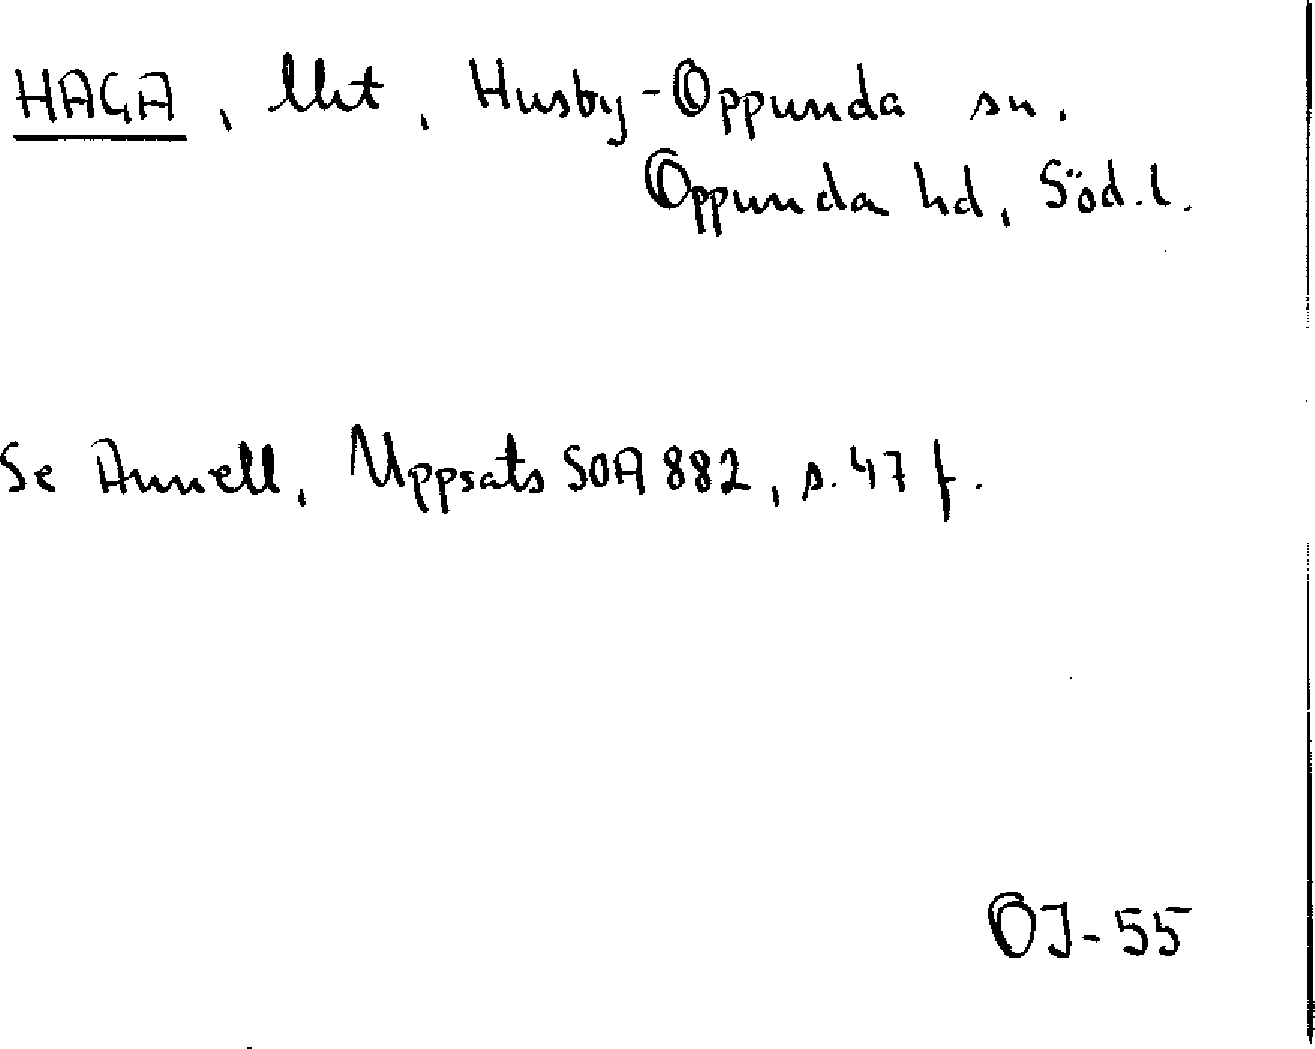 HAGA, lht, Husby-Oppunda sn.
Oppunda hd, Söd. l.
Se Annell, Uppsats SOA 882, s. 47 f.
OJ-55